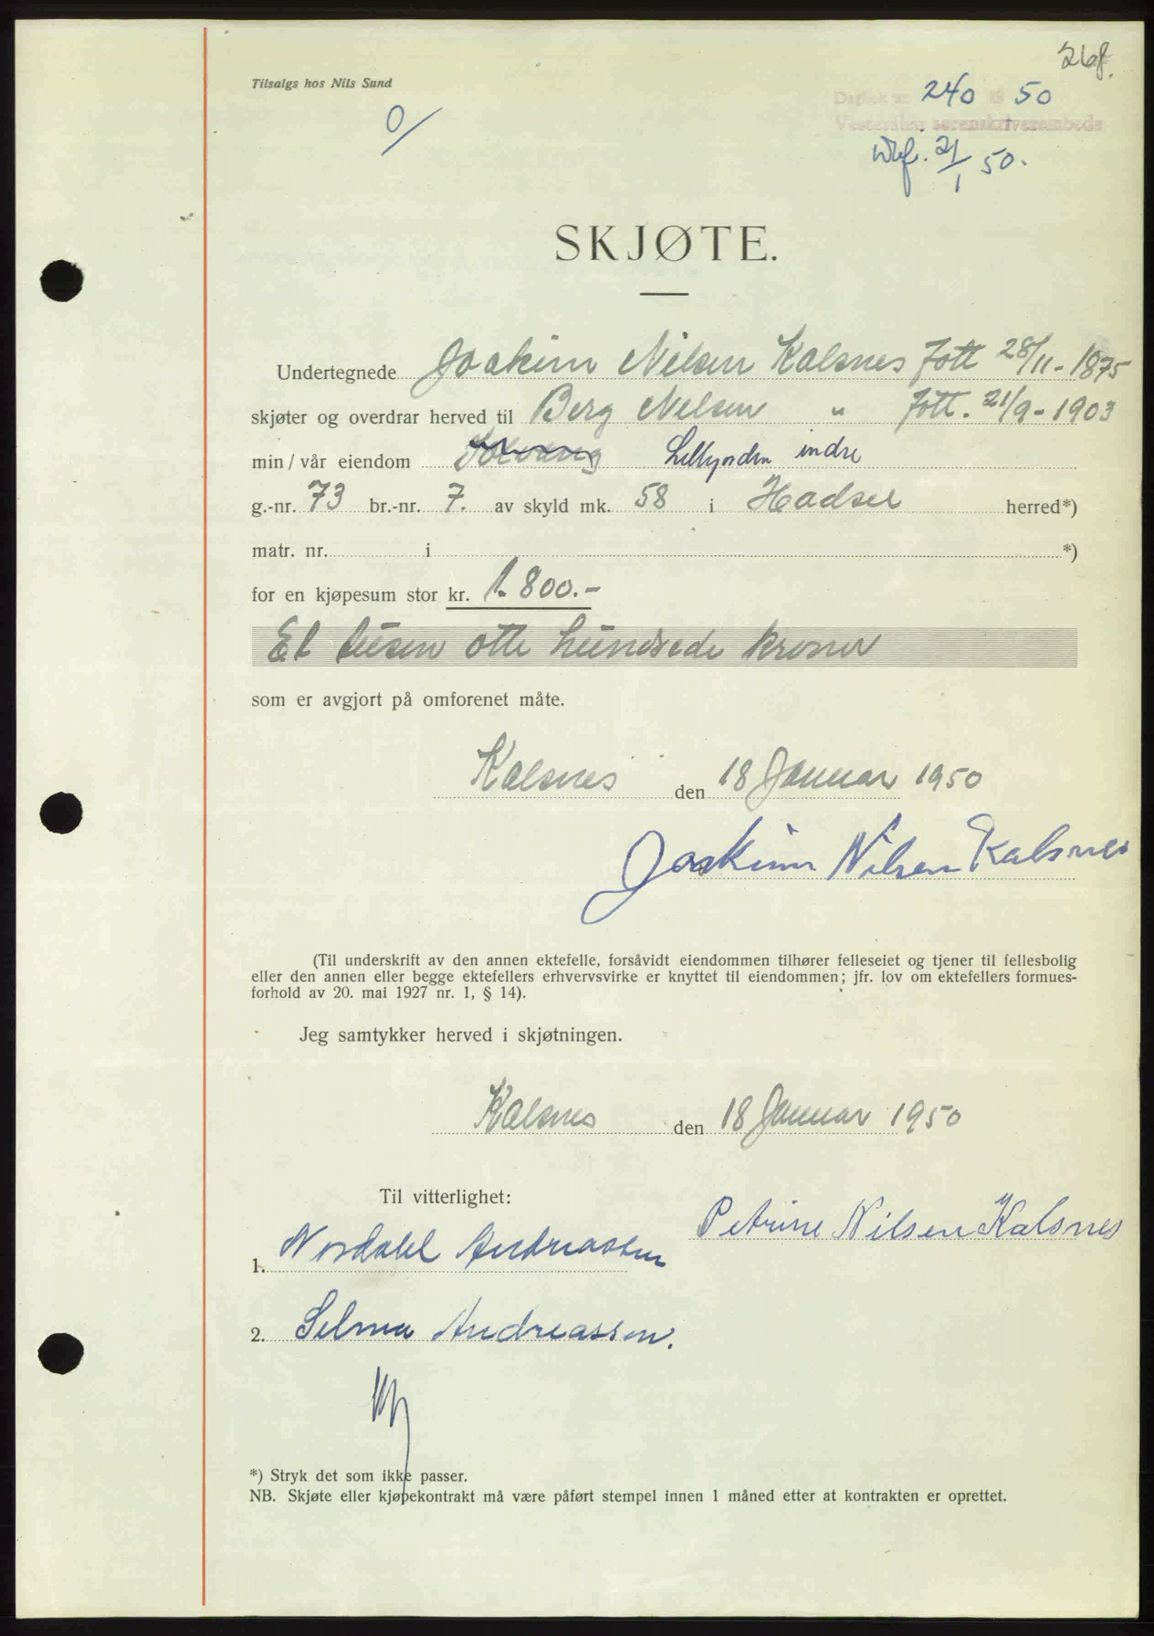 268.
Tilsalgs hos Nils Sund
0/
Dagbok nr. 240 19 50
Vesterålen sorenskriverembede
21/1 50.
SKJØTE.
Undertegnede Joakim Nilsen Kalsnes født 28/11-1875
skjøter og overdrar herved til Berg Nilsen " født. 21/9-1903
min/vår eiendom Solvang indre
g.-nr. 73 br.-nr. 7. av skyld mk. 58 i Hadsel herred*)
matr. nr. i *)
for en kjøpesum stor kr. 1.800.-
Et tusen otte hundrede kroner
som er avgjort på omforenet måte.
Kalsnes den 18 Januar 1950
Joakim Nilsen Kalsnes
(Til underskrift av den annen ektefelle, forsåvidt eiendommen tilhører felleseiet og tjener til fellesbolig
eller den annen eller begge ektefellers erhvervsvirke er knyttet til eiendommen; jfr. lov om ektefellers formues-
forhold av 20. mai 1927 nr. 1, § 14).
Jeg samtykker herved i skjøtningen.
Kalsnes den 18 Januar 1950
Til vitterlighet:
Petrine Nilsen Kalsnes
1. Nordahl Andreassen
2. Selma Andreassen.
*) Stryk det som ikke passer.
NB. Skjøte eller kjøpekontrakt må være påført stempel innen 1 måned etter at kontrakten er oprettet.